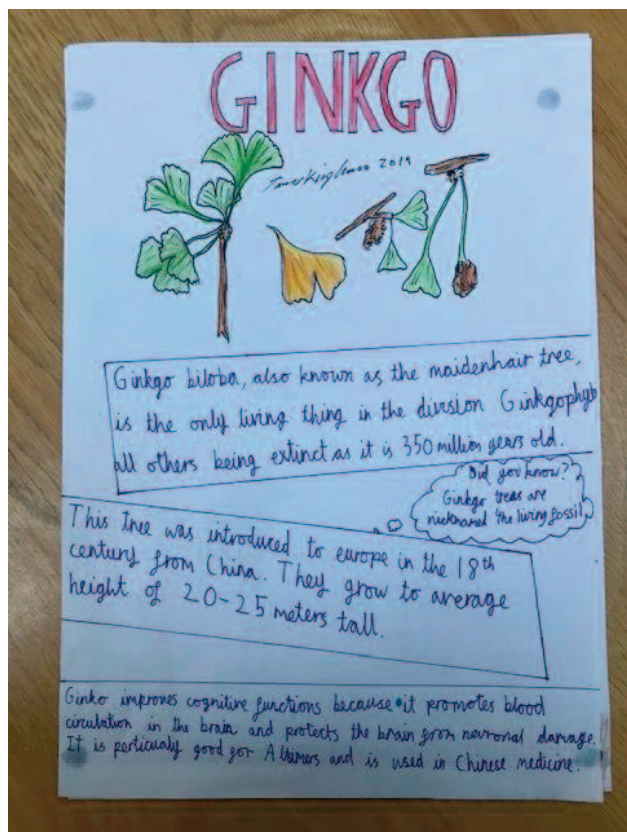 GINKGO
2019
Ginkgo biloba, also known as the maidenhair tree,
is the only living thing in the division Ginkgophyb
all others being extinct as it is 350 million years old.
Did you know?
Ginkgo trees are
nicknamed 'the living fossil
This tree was introduced to europe in the 18th
century from China. They grow to average
height of 20-25 meters tall.
Ginko improves cognitive functions because it promotes blood
circulation in the brain and protects the brain from neuronal damage.
It is perticualy good for and is used in Chinese medicine.